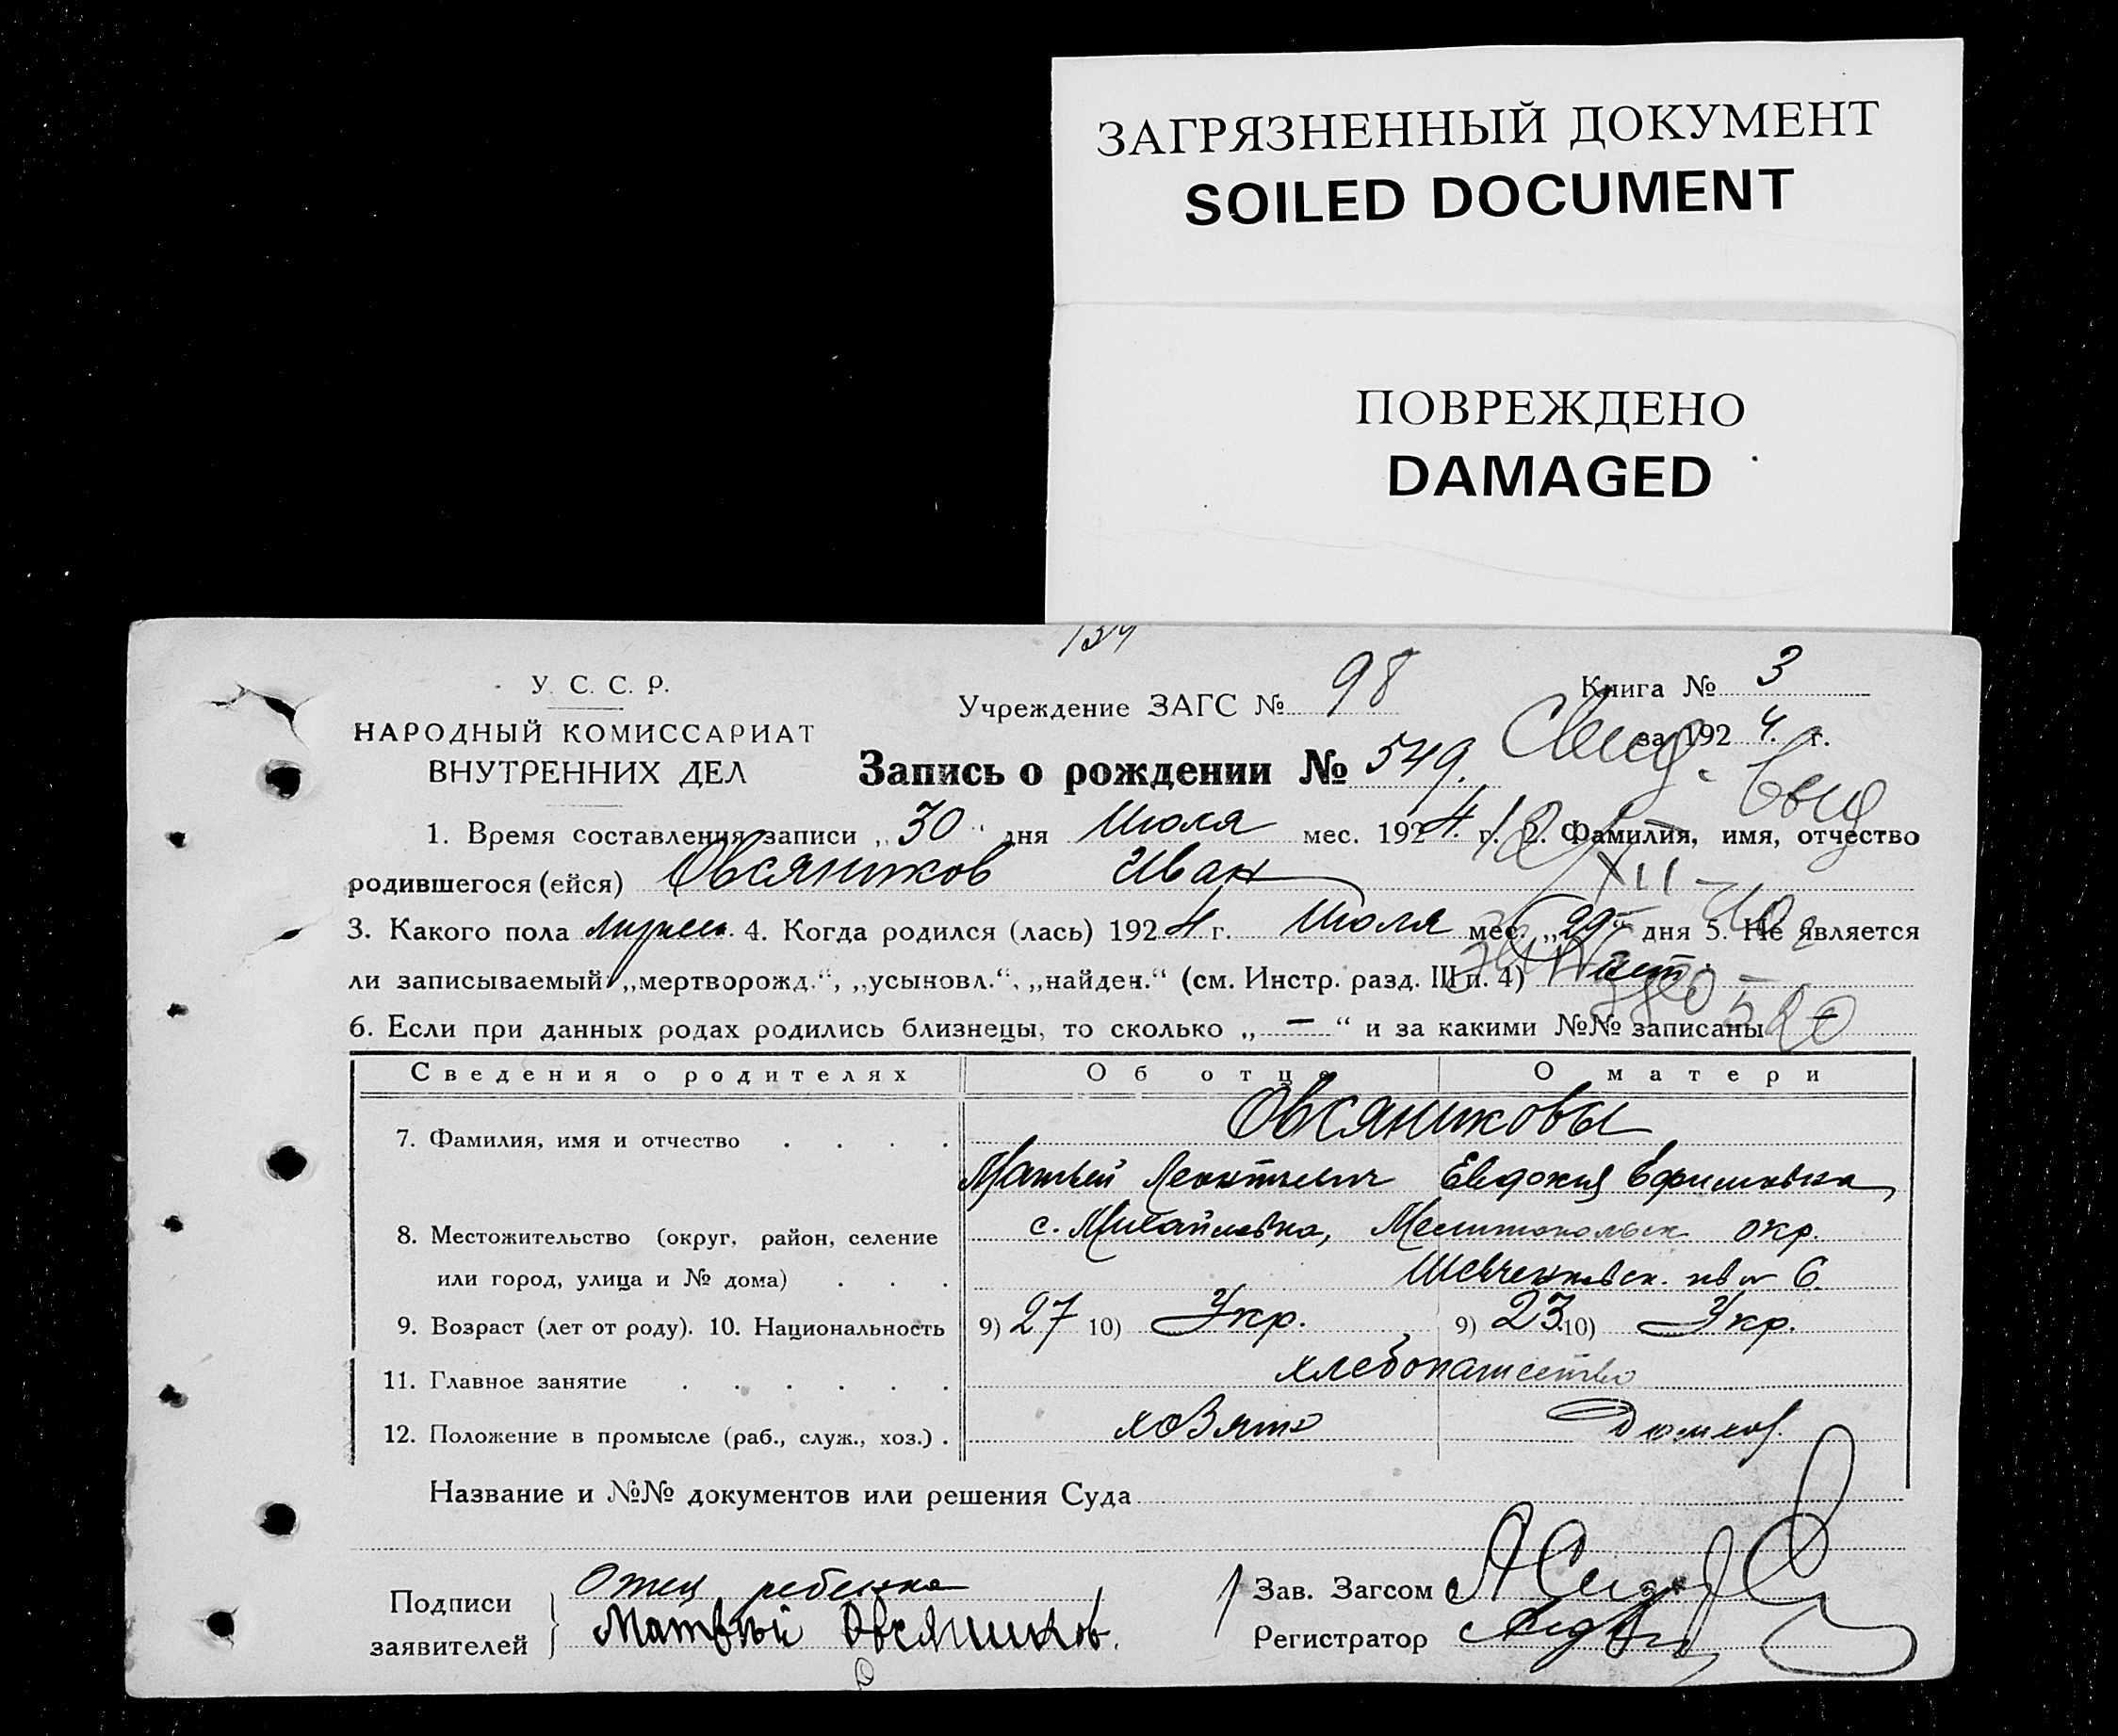 ЗАГРЯЗНЕННЫЙ ДОКУМЕНТ
SOILED DOCUMENT
ПОВРЕЖДЕНО
DAMAGED
134
У. С. С. Р.
НАРОДНЫЙ КОМИССАРИАТ
ВНУТРЕННИХ ДЕЛ
Учреждение ЗАГС № 98
Книга № 3
за 1924 г.
Запись о рождении № 549.
1. Время составления записи „30“ дня Июля мес. 1924 г. 2. Фамилия, имя, отчество
родившегося (ейся) Овсяников Иван
3. Какого пола мужск. 4. Когда родился (лась) 1924 г. Июля мес. „29“ дня 5. Не является
ли записываемый „мертворожд.“, „усыновл.“, „найден.“ (см. Инстр. разд. III п. 4) нет.
6. Если при данных родах родились близнецы, то сколько „ — “ и за какими №№ записаны
Сведения о родителях Об отце О матери
Овсяниковы
7. Фамилия, имя и отчество . . . .
Матвей Леонтьевич Евдокия Ефимовна
8. Местожительство (округ, район, селение с. Михайловка, Мелитопольск окр.
или город, улица и № дома) . . . Шевченковск. 6
9. Возраст (лет от роду). 10. Национальность 9) 27 10) Укр. 9) 23 10) Укр.
11. Главное занятие . . . . . . хлебопашество
12. Положение в промысле (раб., служ., хоз.) . хозяин
Название и №№ документов или решения Суда
Подписи заявителей
Отец ребенка
Матвей Овсяников.
Зав. Загсом
Регистратор